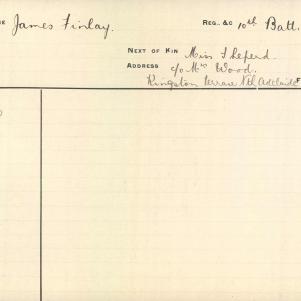 James Finlay. REG., &C 10th Batt.
NEXT OF KIN Miss Sheperd.
ADDRESS c/o Mrs Wood.
Kingston Terrace Nth Adelaide